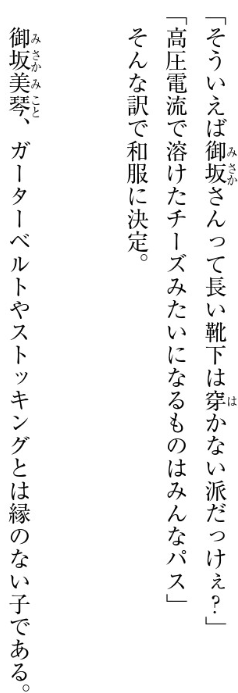 「そういえば御坂さんって長い靴下は穿かない派だっけぇ?」
「高圧電流で溶けたチーズみたいになるものはみんなパス」
そんな訳で和服に決定。
御坂美琴、ガーターベルトやストッキングとは縁のない子である。